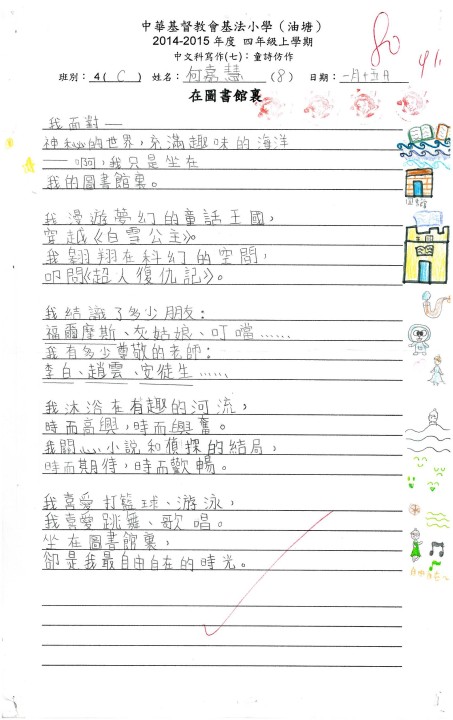 中華基督教會基法小學（油塘）
2014-2015 年度 四年級上學期
中文科寫作(七)：童詩仿作
班別：4( C ) 姓名：何嘉慧 (8) 日期：一月十五日
80
在圖書館裏
我面對—
神秘的世界，充滿趣味的海洋
—啊，我只是坐在
我的圖書館裏。
我漫遊夢幻的童話王國，
穿越《白雪公主》。
我翱翔在科幻的空間，
叩問《超人復仇記》。
我結識了多少朋友：
福爾摩斯、灰姑娘、叮噹……
我有多少尊敬的老師：
李白、趙雲、安徒生……
我沐浴在有趣的河流，
時而高興，時而興奮。
我關心小說和偵探的結局，
時而期待，時而歡暢。
我喜愛打籃球、游泳，
我喜愛跳舞、歌唱。
坐在圖書館裏，
卻是我最自由自在的時光。